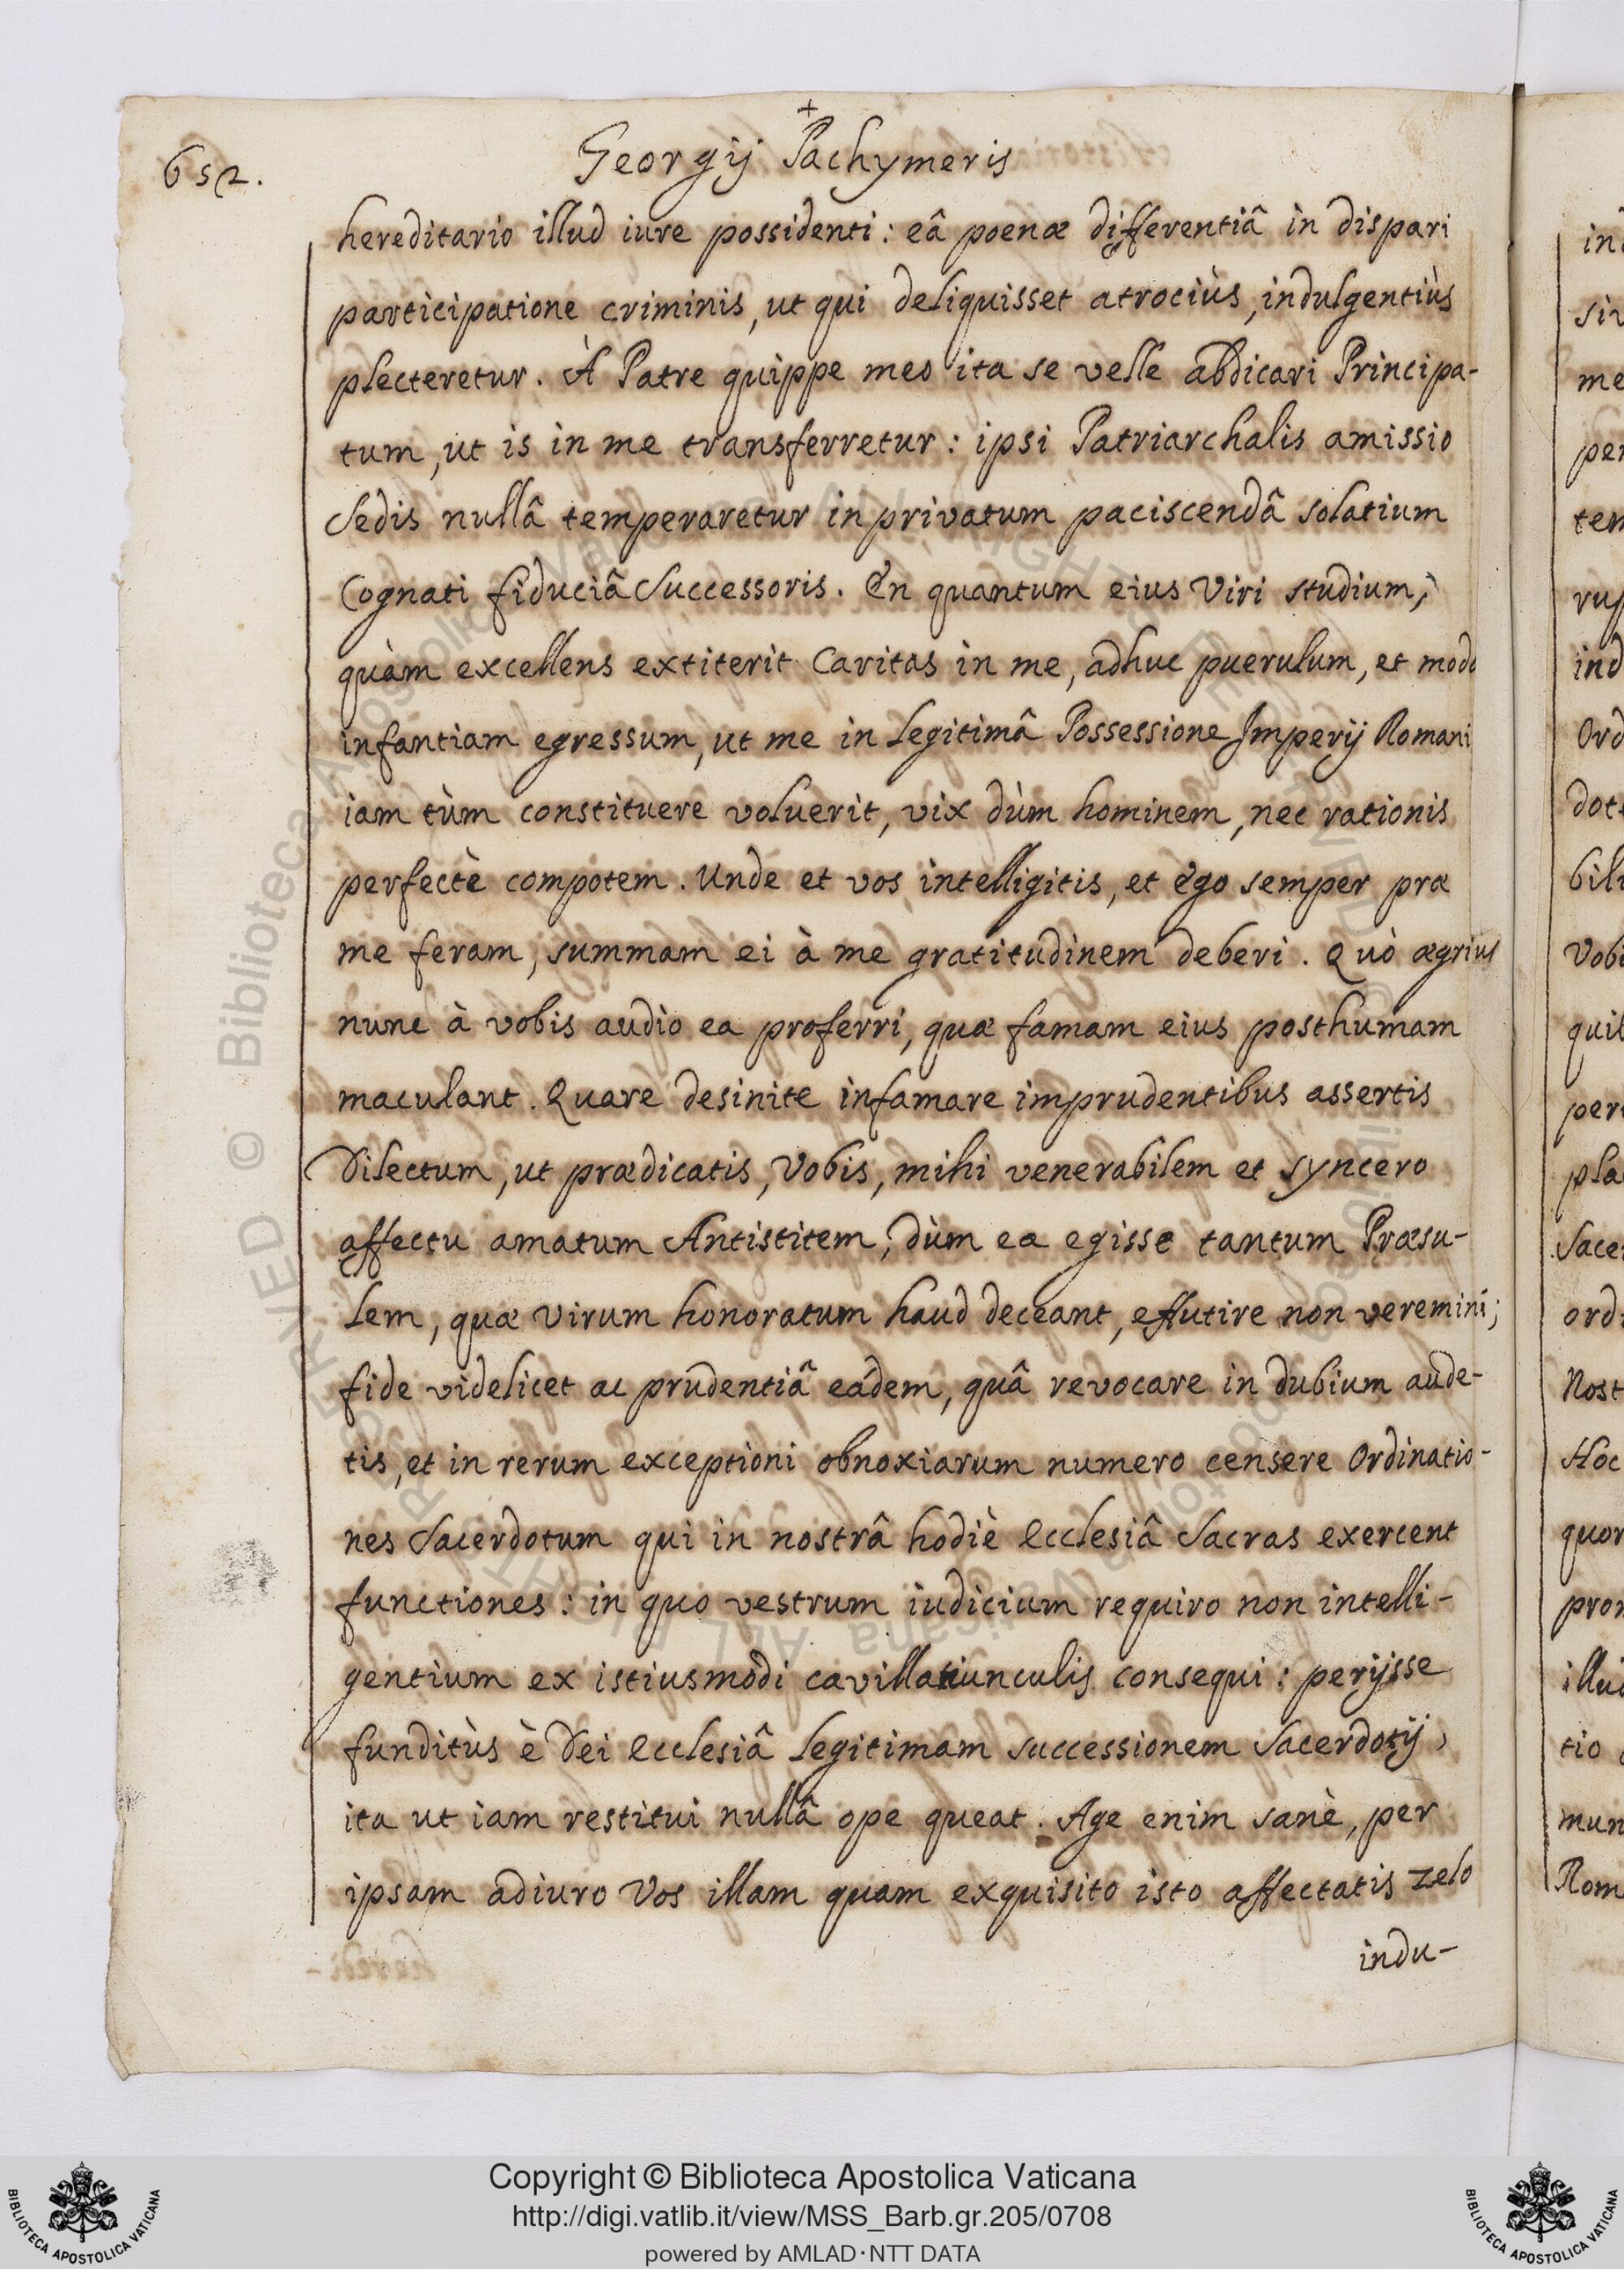 +
652.
Georgij Pachymeris
hereditario illud iure possidenti: eâ poenæ differentiâ in dispari
participatione criminis, ut qui deliquisset atrociùs, indulgentiùs
plecteretur. À Patre quippe meo ita se velle abdicari Principa-
tum, ut is in me transferretur: ipsi Patriarchalis amissio
Sedis nullâ temperaretur in privatum paciscendâ solatium
Cognati fiduciâ Successoris. En quantum eius Viri studium,
quàm excellens extiterit Caritas in me, adhuc puerulum, et modo
infantiam egressum, ut me in legitimâ Possessione Imperij Romani
iam tùm constituere voluerit, vix dùm hominem, nec rationis
perfectè compotem. Unde et vos intelligitis, et ego semper præ
me feram, summam ei à me gratitudinem deberi. Quò ægrius
nunc à vobis audio ea proferri, quæ famam eius posthumam
maculant. Quare desinite infamare imprudentibus assertis
Dilectum, ut prædicatis, Vobis, mihi venerabilem et syncero
affectu amatum Antistitem, dùm ea egisse tantum Præsu-
lem, quæ virum honoratum haud deceant, effutire non veremini;
fide videlicet ac prudentiâ eâdem, quâ revocare in dubium aude-
tis, et in rerum exceptioni obnoxiarum numero censere Ordinatio-
nes Sacerdotum qui in nostrâ hodiè Ecclesiâ Sacras exercent
functiones: in quo vestrum iudicium requiro non intelli-
gentium ex istiusmodi cavillatiunculis consequi: perijsse
funditùs è Dei Ecclesiâ legitimam successionem Sacerdotij,
ita ut iam restitui nullâ ope queat. Age enim sanè, per
ipsam adiuro Vos illam quam exquisito isto affectatis zelo
indu-
Copyright © Biblioteca Apostolica Vaticana
http://digi.vatlib.it/view/MSS_Barb.gr.205/0708
powered by AMLAD·NTT DATA
BIBLIOTECA APOSTOLICA VATICANA
BIBLIOTECA APOSTOLICA VATICANA